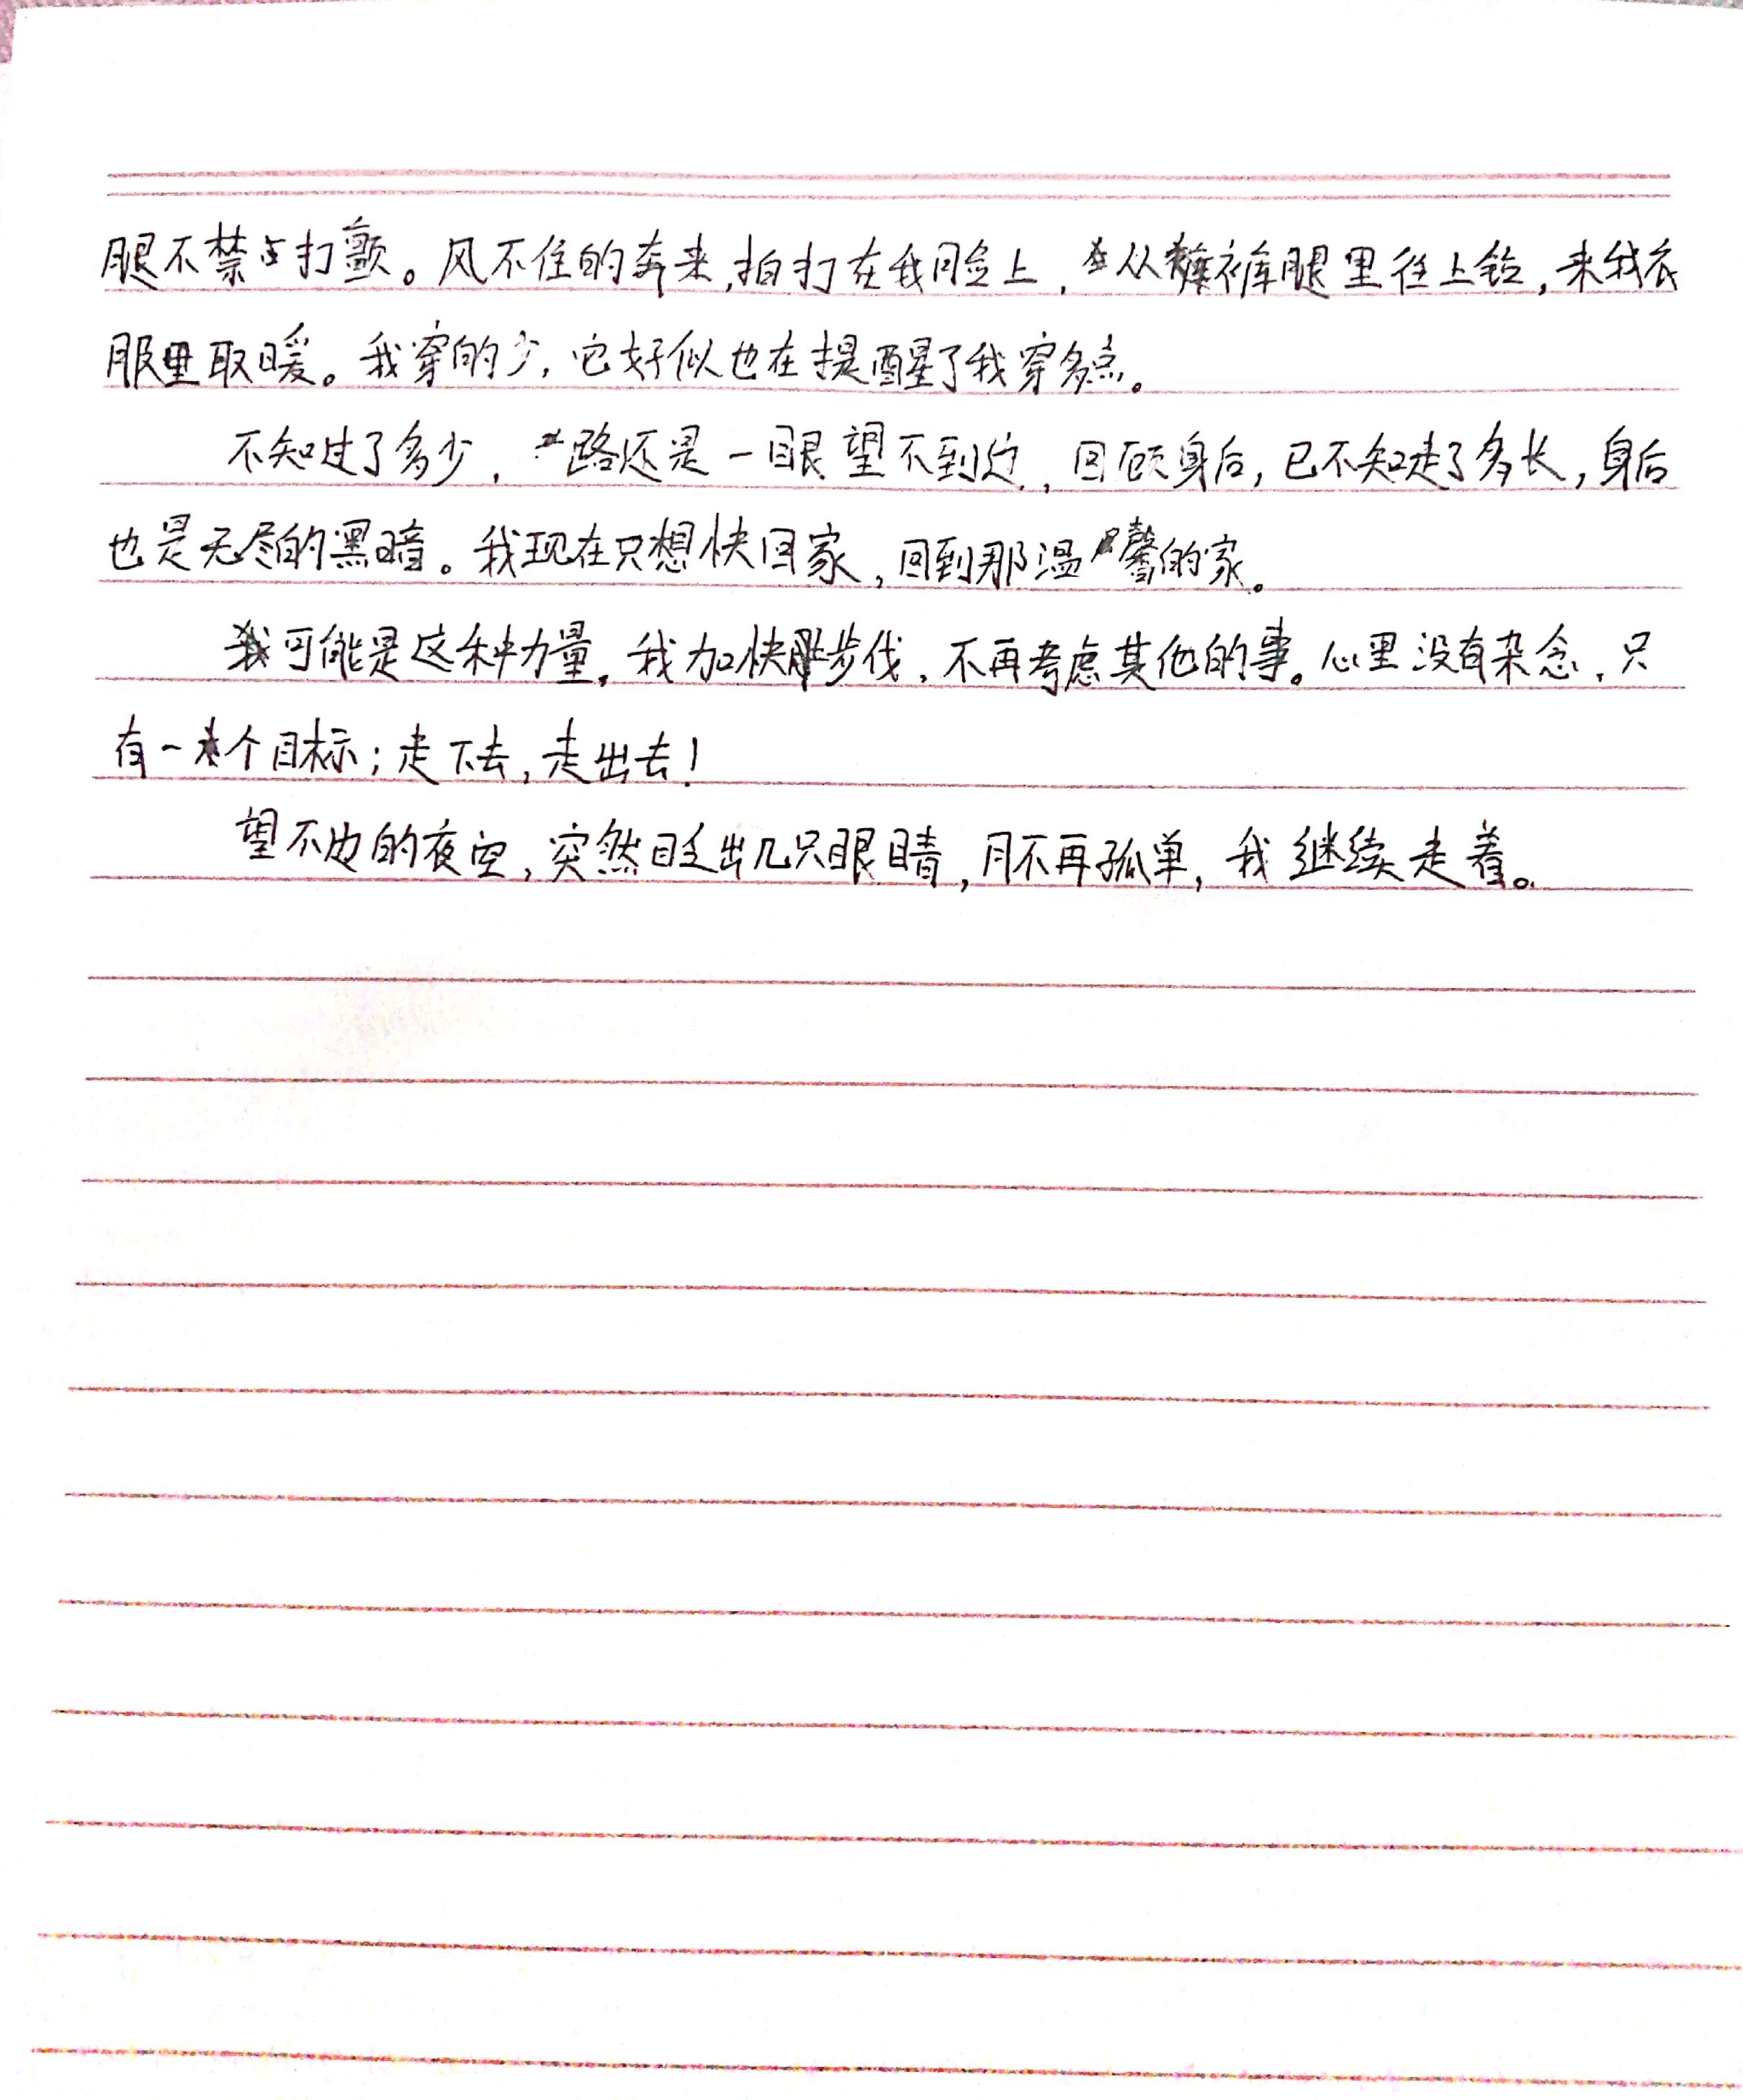 腿不禁打颤。风不住的奔来,拍打在我脸上,从裤腿里往上钻,来我衣
服里取暖。我穿的少,它好似也在提醒了我穿多点。
不知过了多少,路还是一眼望不到边,回顾身后,已不知走了多长,身后
也是无尽的黑暗。我现在只想快回家,回到那温馨的家。
可能是这种力量。我加快步伐,不再考虑其他的事。心里没有杂念,只
有一个目标;走下去,走出去!
望不边的夜空,突然眨出几只眼睛,月不再孤单,我继续走着。